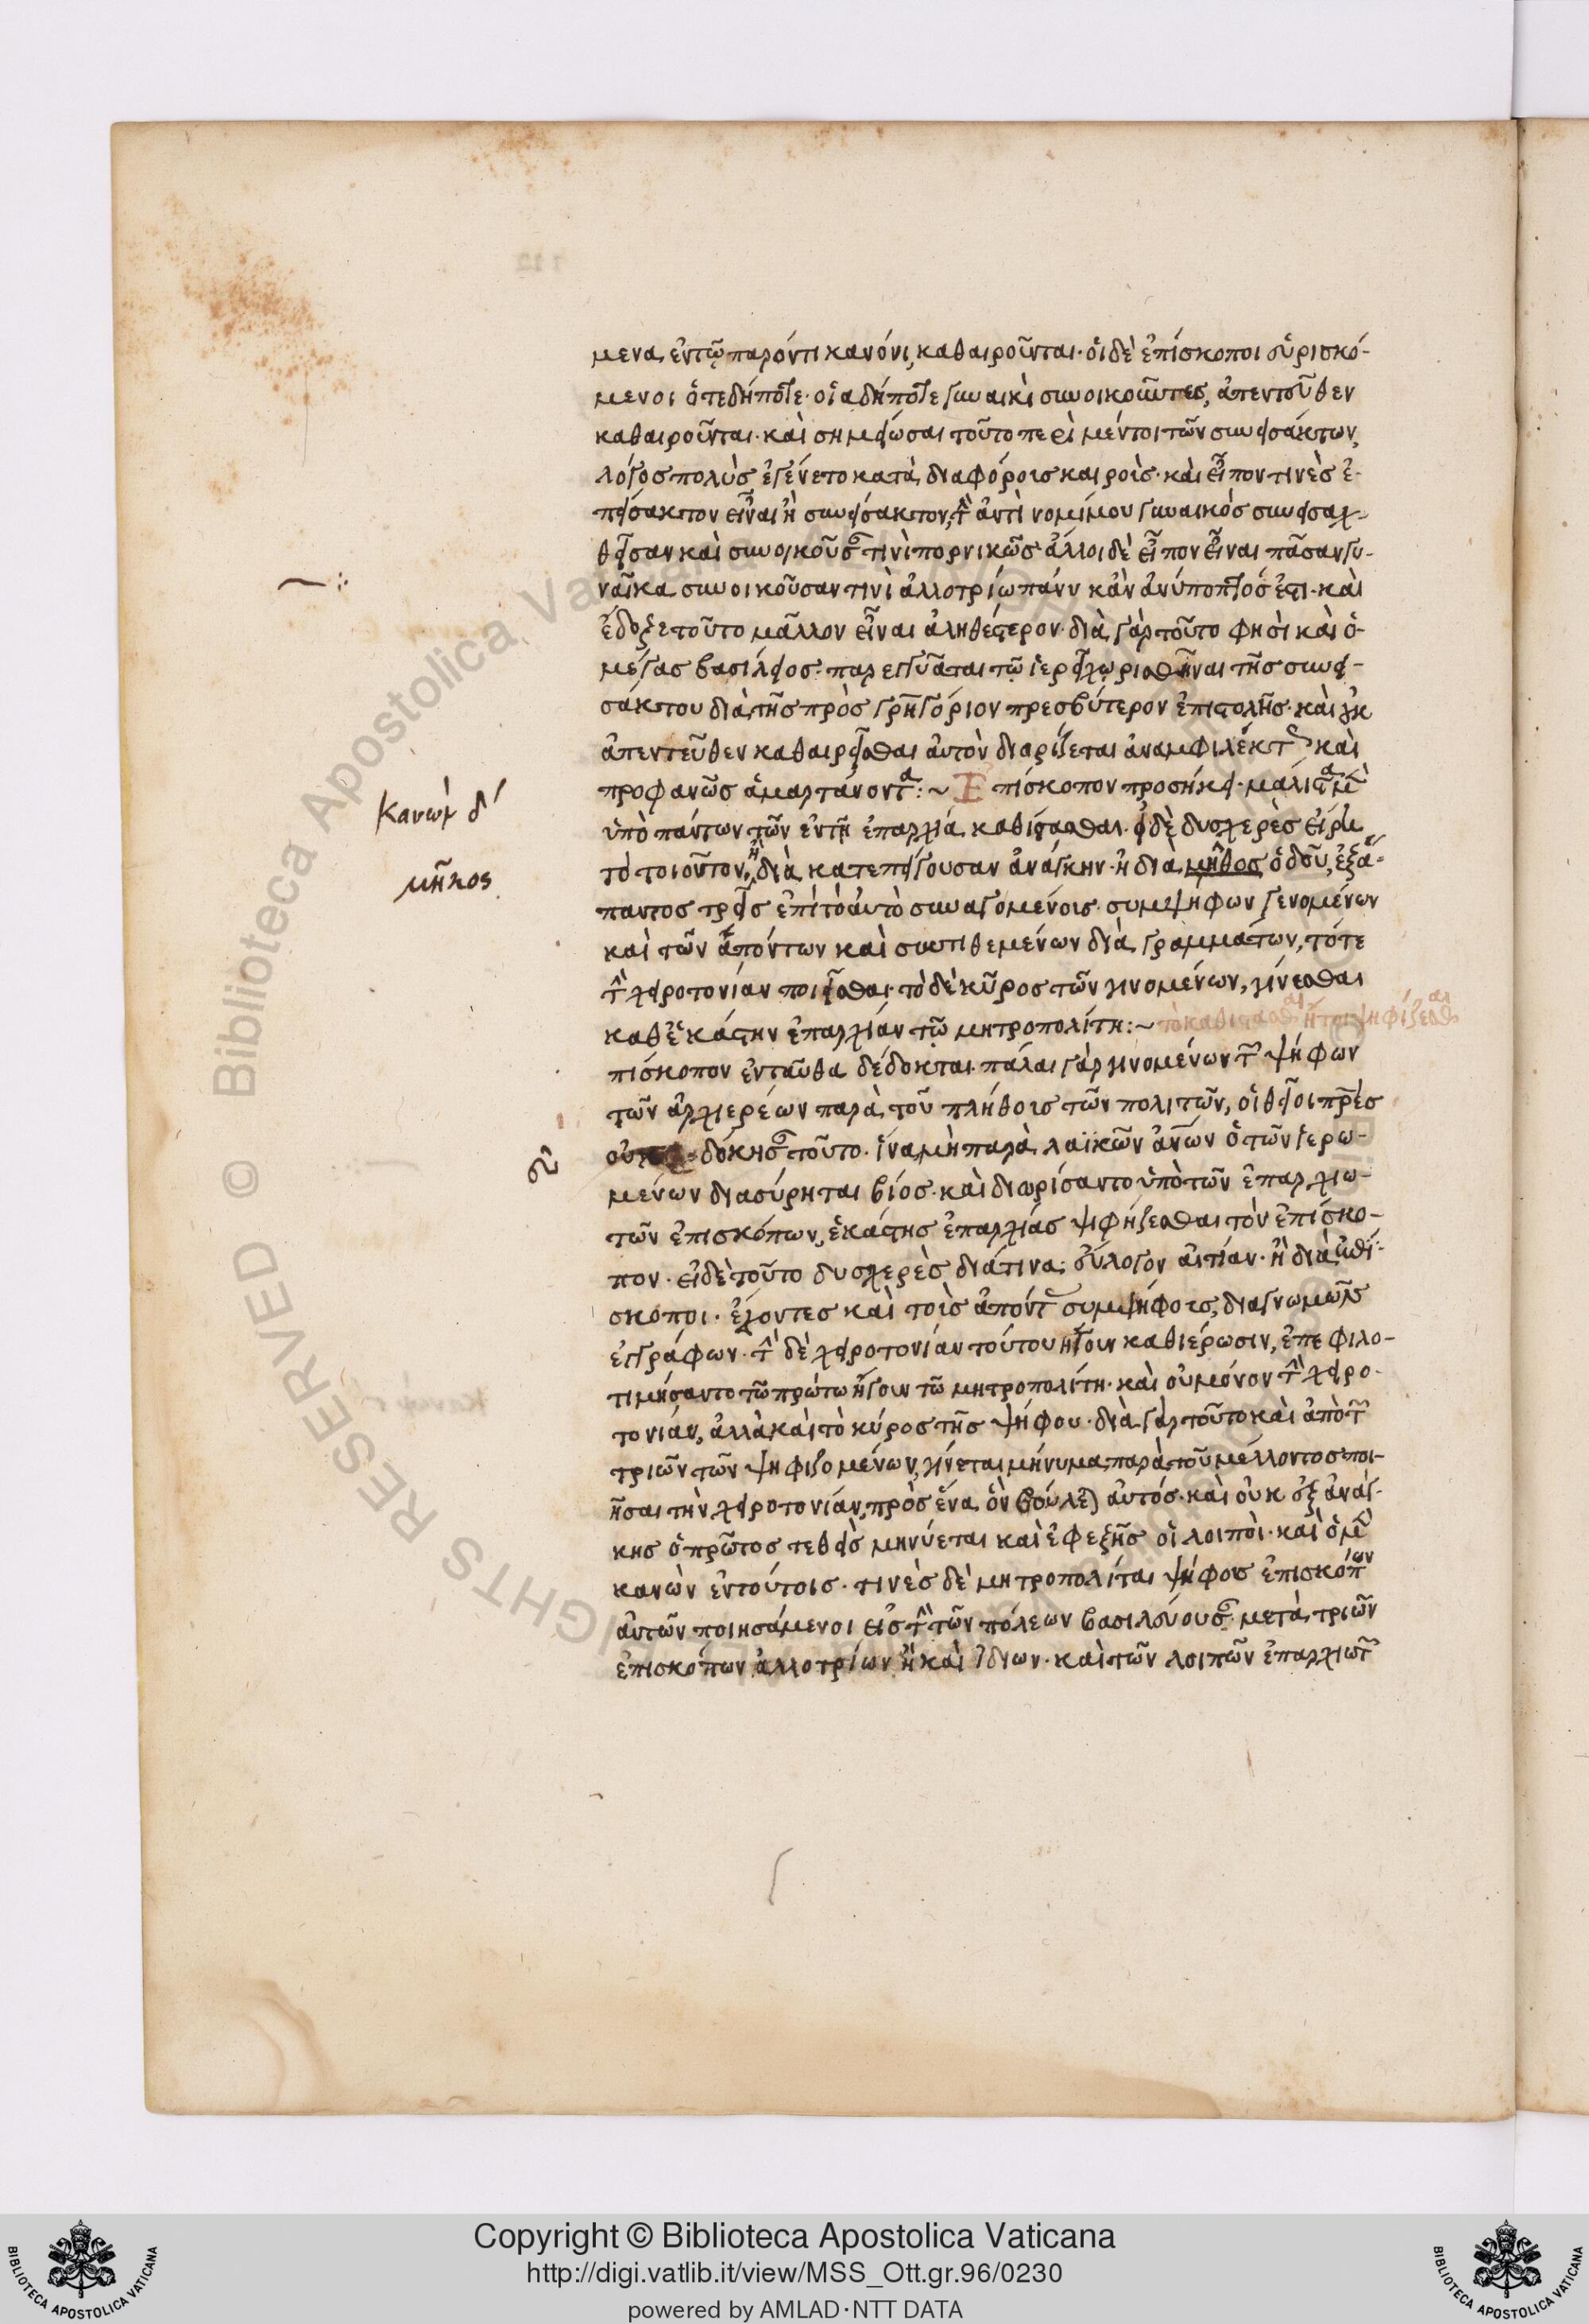 μενα ἐν τῷ παρόντι κανόνι, καθαιροῦνται· οἱ δὲ ἐπίσκοποι εὑρισκό-
μενοι ὁτεδήποτε· οἱαδήποτε γυναικὶ συνοικοῦντες, ἀπεντεῦθεν
καθαιροῦνται· καὶ σημείωσαι τοῦτο περὶ μέντοι τῶν συνεισάκτων,
λόγος πολὺς ἐγένετο κατὰ διαφόροις καιροῖς· καὶ εἶπον τινὲς ἐ-
πείσακτον εἶναι ἢ συνείσακτον, τὴν ἀντὶ νομίμου γυναικὸς συνεισαχ-
θεῖσαν καὶ συνοικοῦσαν τινὶ πορνικῶς ἄλλοι δὲ εἶπον εἶναι πᾶσαν γυ-
ναῖκα συνοικοῦσαν τινὶ ἀλλοτρίω πάνυ κἂν ἀνύποπτός ἐστι· καὶ
ἔδοξε τοῦτο μᾶλλον εἶναι ἀληθέστερον· διὰ γὰρ τοῦτο φησὶ καὶ ὁ
μέγας βασίλειος· παρεγγυᾶται τῷ ἱερεῖ χωρισθῆναι τῆς συνει-
σάκτου διὰ τῆς πρὸς γρηγόριον πρεσβύτερον ἐπιστολῆς· καὶ οὐκ
ἀπεντεῦθεν καθαιρεῖσθαι αὐτὸν διορίζεται ἀναμφιλέκτως καὶ
προφανῶς ἁμαρτάνοντα :~ Ἐπίσκοπον προσήκει· μάλιστα μὲν
ὑπὸ πάντων τῶν ἐν τῇ ἐπαρχία καθίστασθαι· εἰ δὲ δυσχερὲς εἴη
τὸ τοιοῦτον, ἢ διὰ κατεπείγουσαν ἀνάγκην· ἢ διὰ μῆθος ὁδοῦ, ἐξά-
παντος τρεῖς ἐπὶ τὸ αὐτὸ συναγομένοις· συμψήφων γενομένων
καὶ τῶν ἀπόντων καὶ συντιθεμένων διὰ γραμμάτων, τότε
τὴν χειροτονίαν ποιεῖσθαι· τὸ δὲ κῦρος τῶν γινομένων, γίνεσθαι
καθ' ἑκάστην ἐπαρχίαν τῷ μητροπολίτη :~ τὸ καθίστασθαι ἤτοι ψηφίζεσθαι
πίσκοπον ἐνταῦθα δέδοκται· πάλαι γὰρ γινομένων τῶν ψήφων
τῶν ἀρχιερέων παρὰ τοῦ πλήθοις τῶν πολιτῶν, οἱ θεῖοι πρες
δόκησαν τοῦτο· ἵνα μὴ παρὰ λαϊκῶν ἀνων ὁ τῶν ἱερω-
μένων διασύρηται βίος· καὶ διωρίσαντο ὑπὸ τῶν ἐπαρχιω-
τῶν ἐπισκόπων, ἑκάστης ἐπαρχίας ψιφήζεσθαι τὸν ἐπίσκο-
πον· εἰ δὲ τοῦτο δυσχερὲς διά τινα εὔλογον αἰτίαν· ἢ διὰ
σκοποι· ἔχοντες καὶ τοὶς ἀπόντας συμψήφοις, διὰ γνωμῶν
ἐγγράφων· τὴν δὲ χειροτονίαν τούτου ἤγουν καθιέρωσιν, ἐπεφιλο-
τιμήσαντο τῶ πρώτω ἤγουν τῶ μητροπολίτη· καὶ οὐ μόνον τὴν χειρο-
τονίαν, ἀλλὰ καὶ τὸ κύρος τῆς ψήφου· διὰ γὰρ τοῦτο καὶ ἀπὸ τῶν
τριῶν τῶν ψηφιζομένων, γίνεται μήνυμα παρὰ τοῦ μέλλοντος ποι-
ῆσαι τὴν χειροτονίαν, πρὸς ἕνα ὃν βούλεται αὐτός· καὶ οὐκ ἐξ ἀνάγ-
κης ὁ πρῶτος τεθεὶς μηνύεται καὶ ἐφεξῆς οἱ λοιποὶ· καὶ ὁ μὲν
κανὼν ἐν τούτοις· τινὲς δὲ μητροπολίται ψήφοις ἐπισκόπων
αὐτῶν ποιησάμενοι εἰς τὴν τῶν πόλεων βασιλεύουσαν· μετὰ τριῶν
ἐπισκόπων ἀλλοτρίων ἢ καὶ ἰδίων· καὶ τῶν λοιπῶν ἐπαρχιωτῶν
Κανὼν δ΄
μῆκος
Copyright © Biblioteca Apostolica Vaticana
http://digi.vatlib.it/view/MSS_Ott.gr.96/0230
powered by AMLAD·NTT DATA
BIBLIOTECA APOSTOLICA VATICANA
BIBLIOTECA APOSTOLICA VATICANA